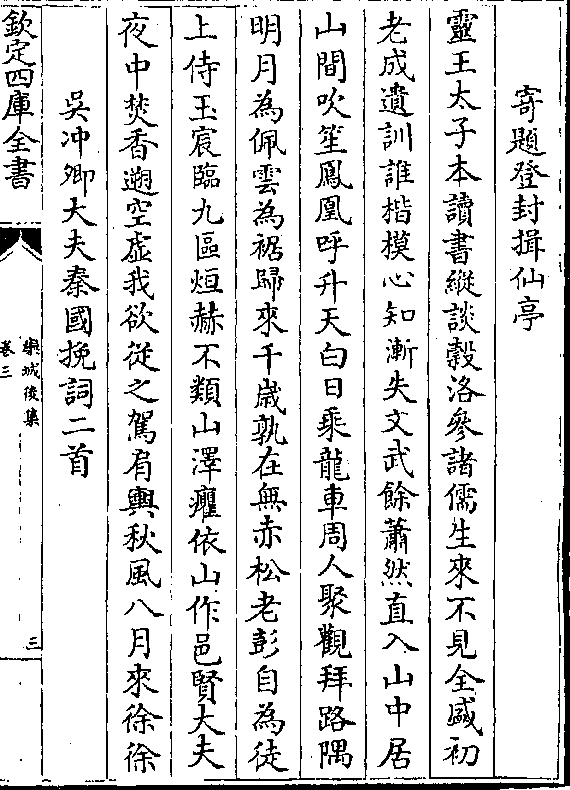 寄題登封揖仙亭
靈王太子本讀書縱談穀洛參諸儒生來不見全盛初
老成遺訓誰楷模心知漸失文武餘蕭然直入山中居
山間吹笙鳳凰呼升天白日乘龍車周人聚觀拜路隅
明月為佩雲為裾歸來千歲孰在無赤松老彭自為徒
上侍玉宸臨九區烜赫不類山澤癯依山作邑賢大夫
夜中焚香遡空虛我欲從之駕肩輿秋風八月來徐徐
吳冲卿大夫秦國挽詞二首
欽定四庫全書
欒城後集
卷三
三